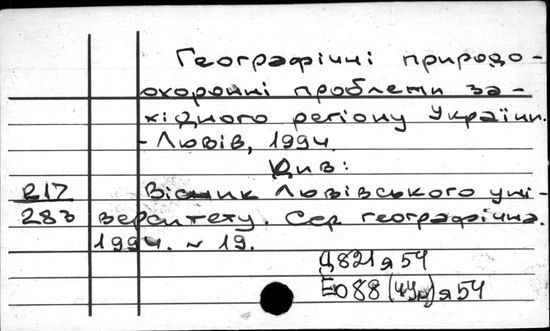 Географічні природо-
охоронні проблеми за-
хідного регіону України.
- Львів, 1994.
Див:
217 Вісник Львівського уні-
283 верситету. Сер географічна.
1994. N 19.
Д821я54
Ео88(4Ук)я54